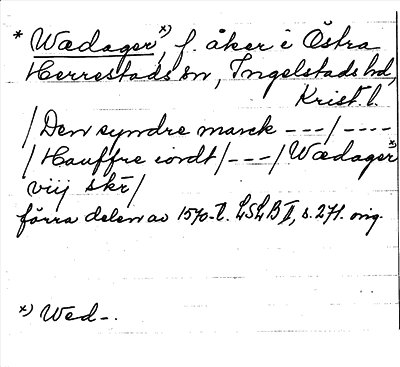 * Wædager x), f. åker i Östra
Herrestads sn, Ingelstads hd,
Krist. l.
/ Den syndre marck --- / ----
/ Hauffre iordt / --- / Wædager x)
viij skr /
förra delen av 1570-t. LSLB II, s. 271. orig.
x) Wed-.